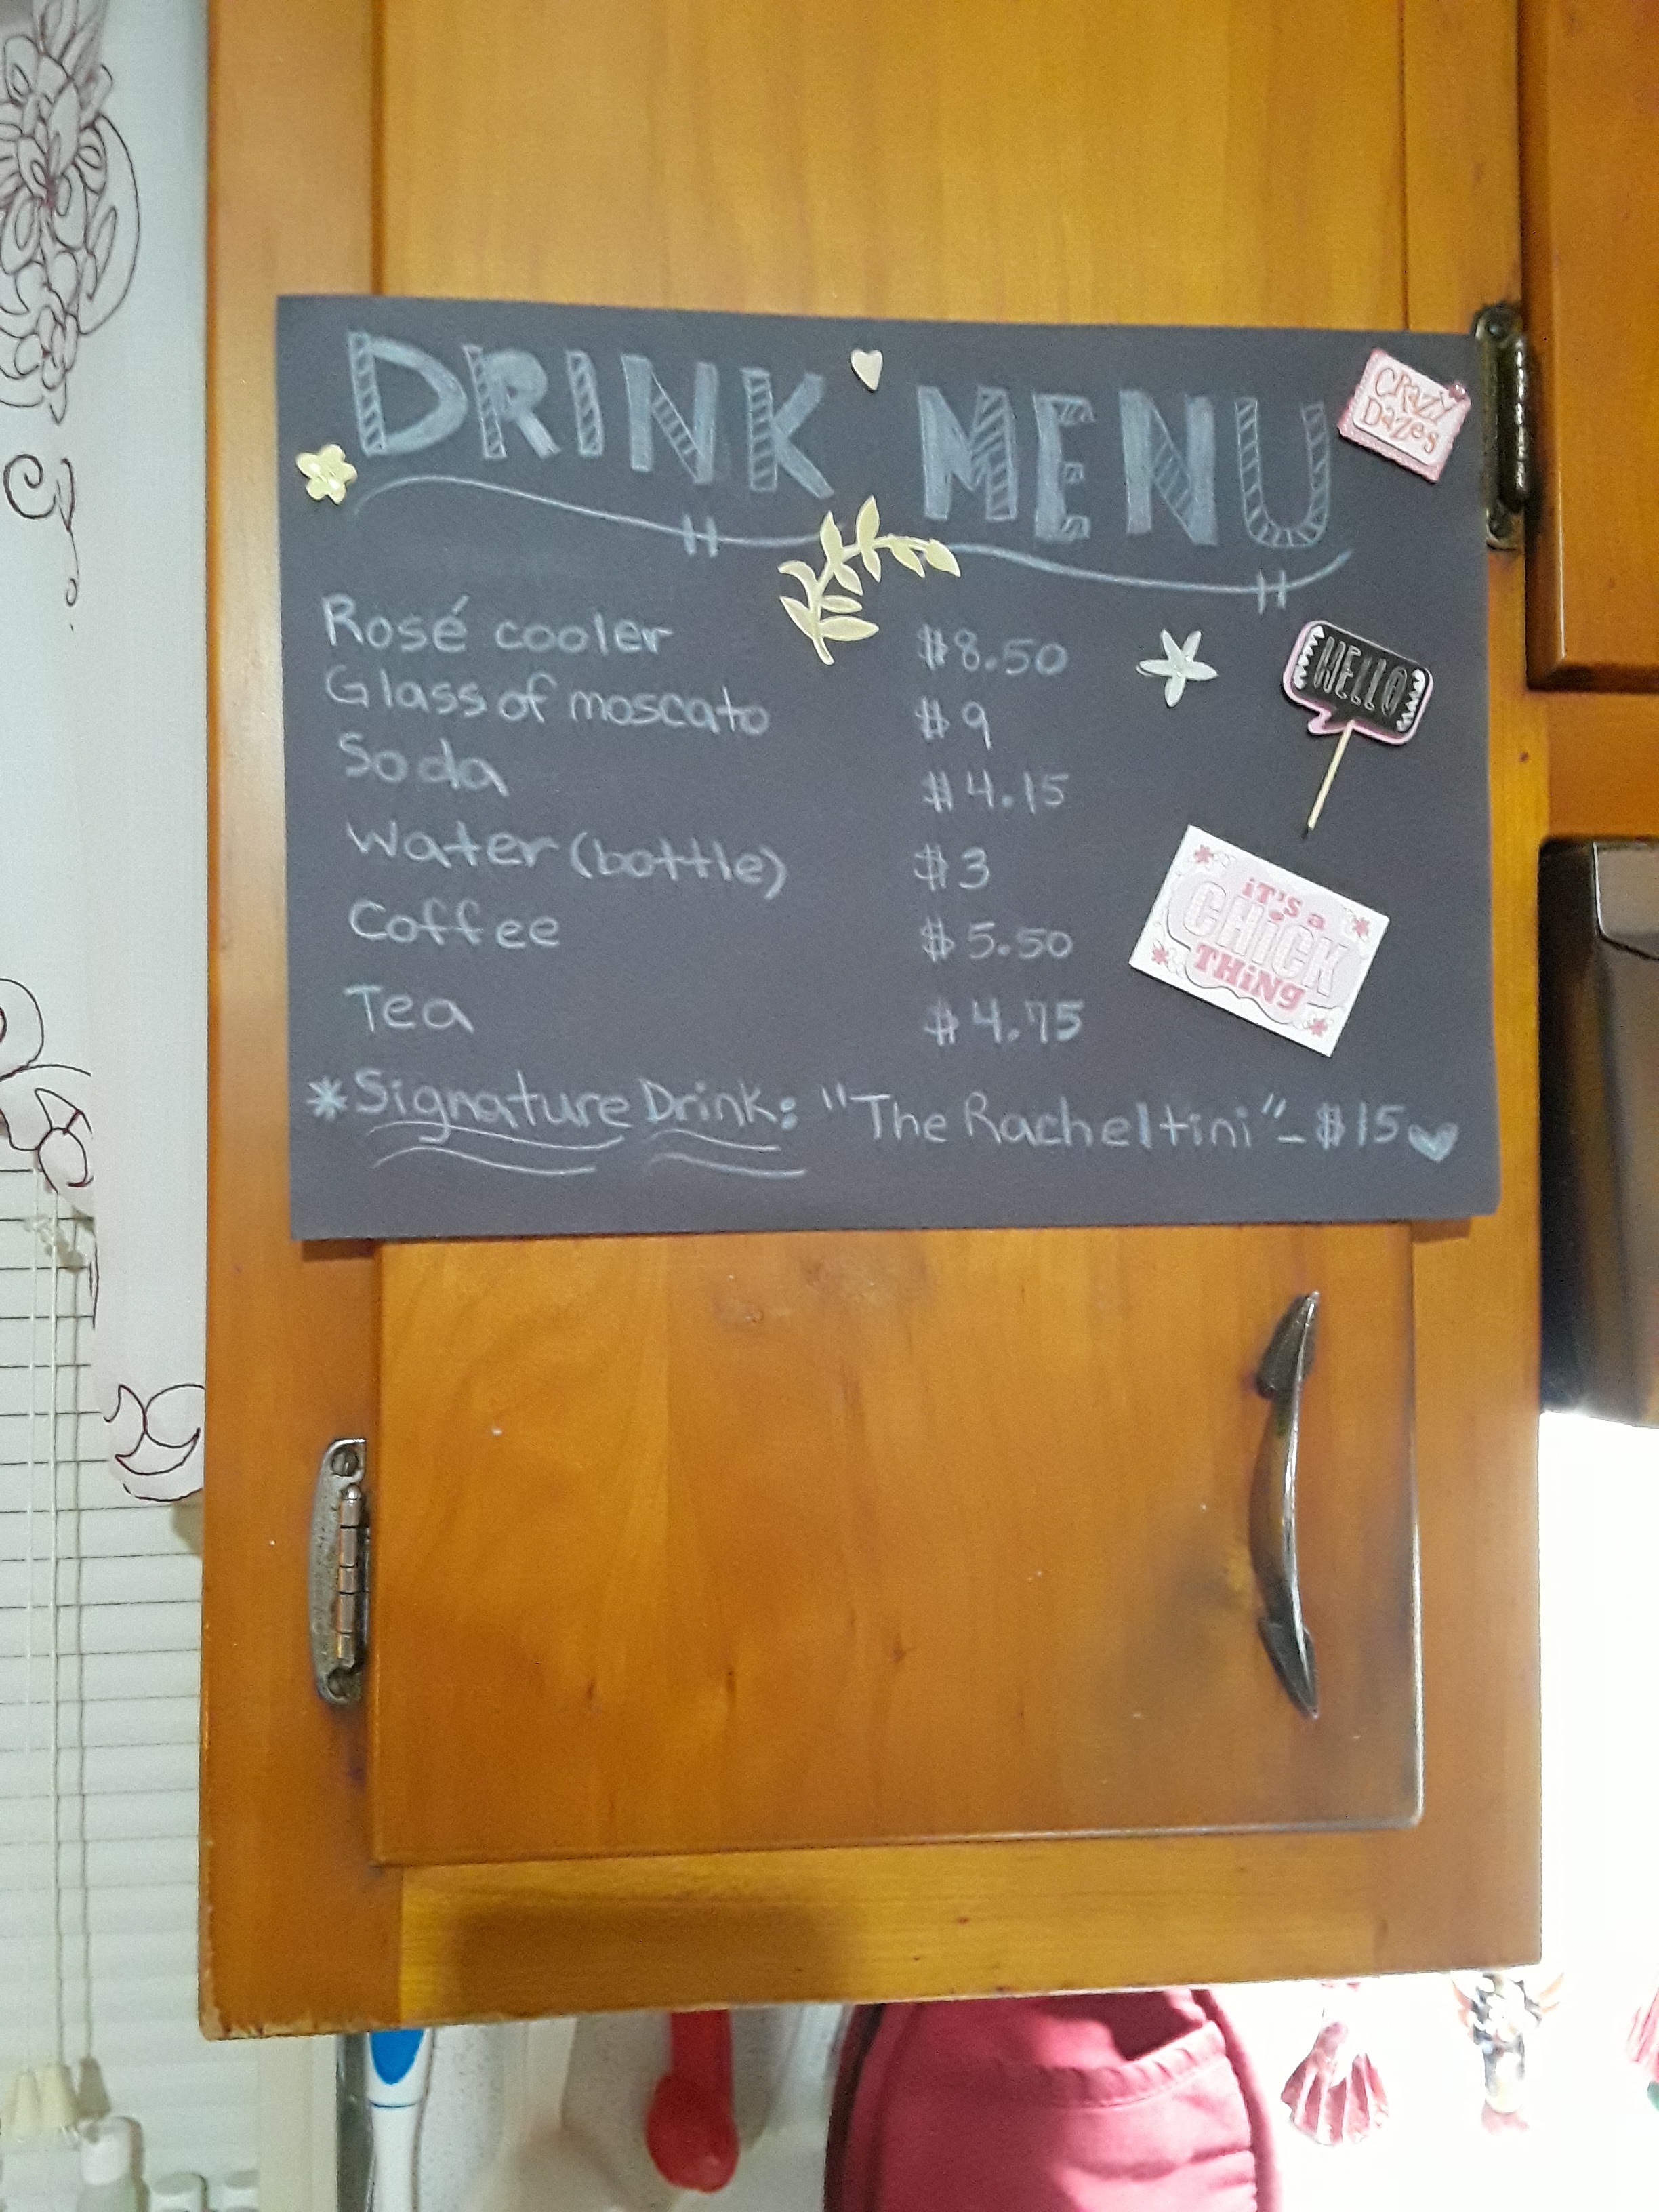 DRINK MENU
CRAZY
DAZES
Rosé cooler $8.50
Glass of moscato $9
HELLO
Soda $4.15
Water (bottle) $3
Coffee $5.50
iT'S a
CHiCK
THiNg
Tea $4.75
*Signature Drink: "The Racheltini" - $15